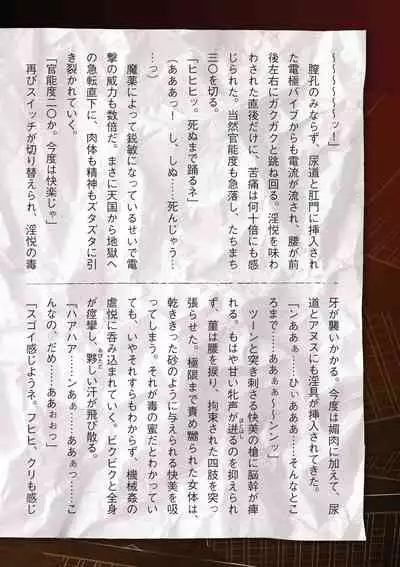 ～～～～～～ッ！」
　膣孔のみならず、尿道と肛門に挿入され
た電極バイブからも電流が流され、腰が前
後左右にガクガクと跳ね回る。淫悦を味わ
わされた直後だけに、苦痛は何十倍にも感
じられた。当然官能度も急落し、たちまち
三〇を切る。
「ヒヒヒッ。死ぬまで踊るネ」
（あああっ！　し、しぬ……死んじゃう…
…っ）
　魔薬によって鋭敏になっているせいで電
撃の威力も数倍だ。まさに天国から地獄へ
の急転直下に、肉体も精神もズタズタに引
き裂かれていく。
「官能度二〇か。今度は快楽じゃ」
　再びスイッチが切り替えられ、淫悦の毒
牙が襲いかかる。今度は媚肉に加えて、尿
道とアヌスにも淫具が挿入されてきた。
「ンああぁ……ひぃあああ……そんなとこ
ろまで……あぁぁぁ～～ンンッ」
　ツーンと突き刺さる快美の槍に脳幹が痺
れる。もはや甘い牝声が迸るのを抑えられ
ず、菫は腰を捩り、拘束された四肢を突っ
張らせた。極限まで責め嬲られた女体は、
乾ききった砂のように与えられる快美を吸
ってしまう。それが毒の蜜だとわかってい
ても、いやそれすらもわからず、機械姦の
虐悦に呑み込まれていく。ビクビクと全身
が痙攣し、夥しい汗が飛び散る。
「ハアハア……ンあぁ……ああぁっ……こ
んなの、だめ……ああぉぉっ」
「スゴイ感じようネ。フヒヒ、クリも感じ